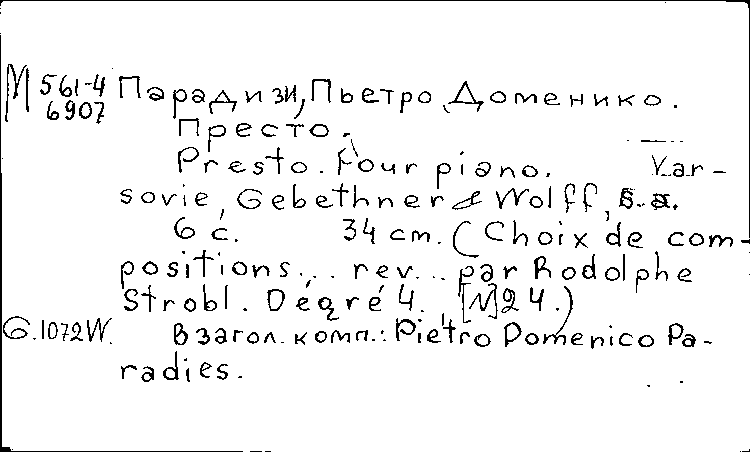 М 561-4 Парадизи, Пьетро Доменико.
6907
Престо.
Presto. Four piano. Var-
sovie, Gebethner & Wolff, s. a.
6 с. 34 cm. (Choix de com-
positions... rev... par Rodolphe
Strobl. Degré 4. [N]24.)
G.1072W. В загол. комп.: Pietro Domenico Pa-
radies.